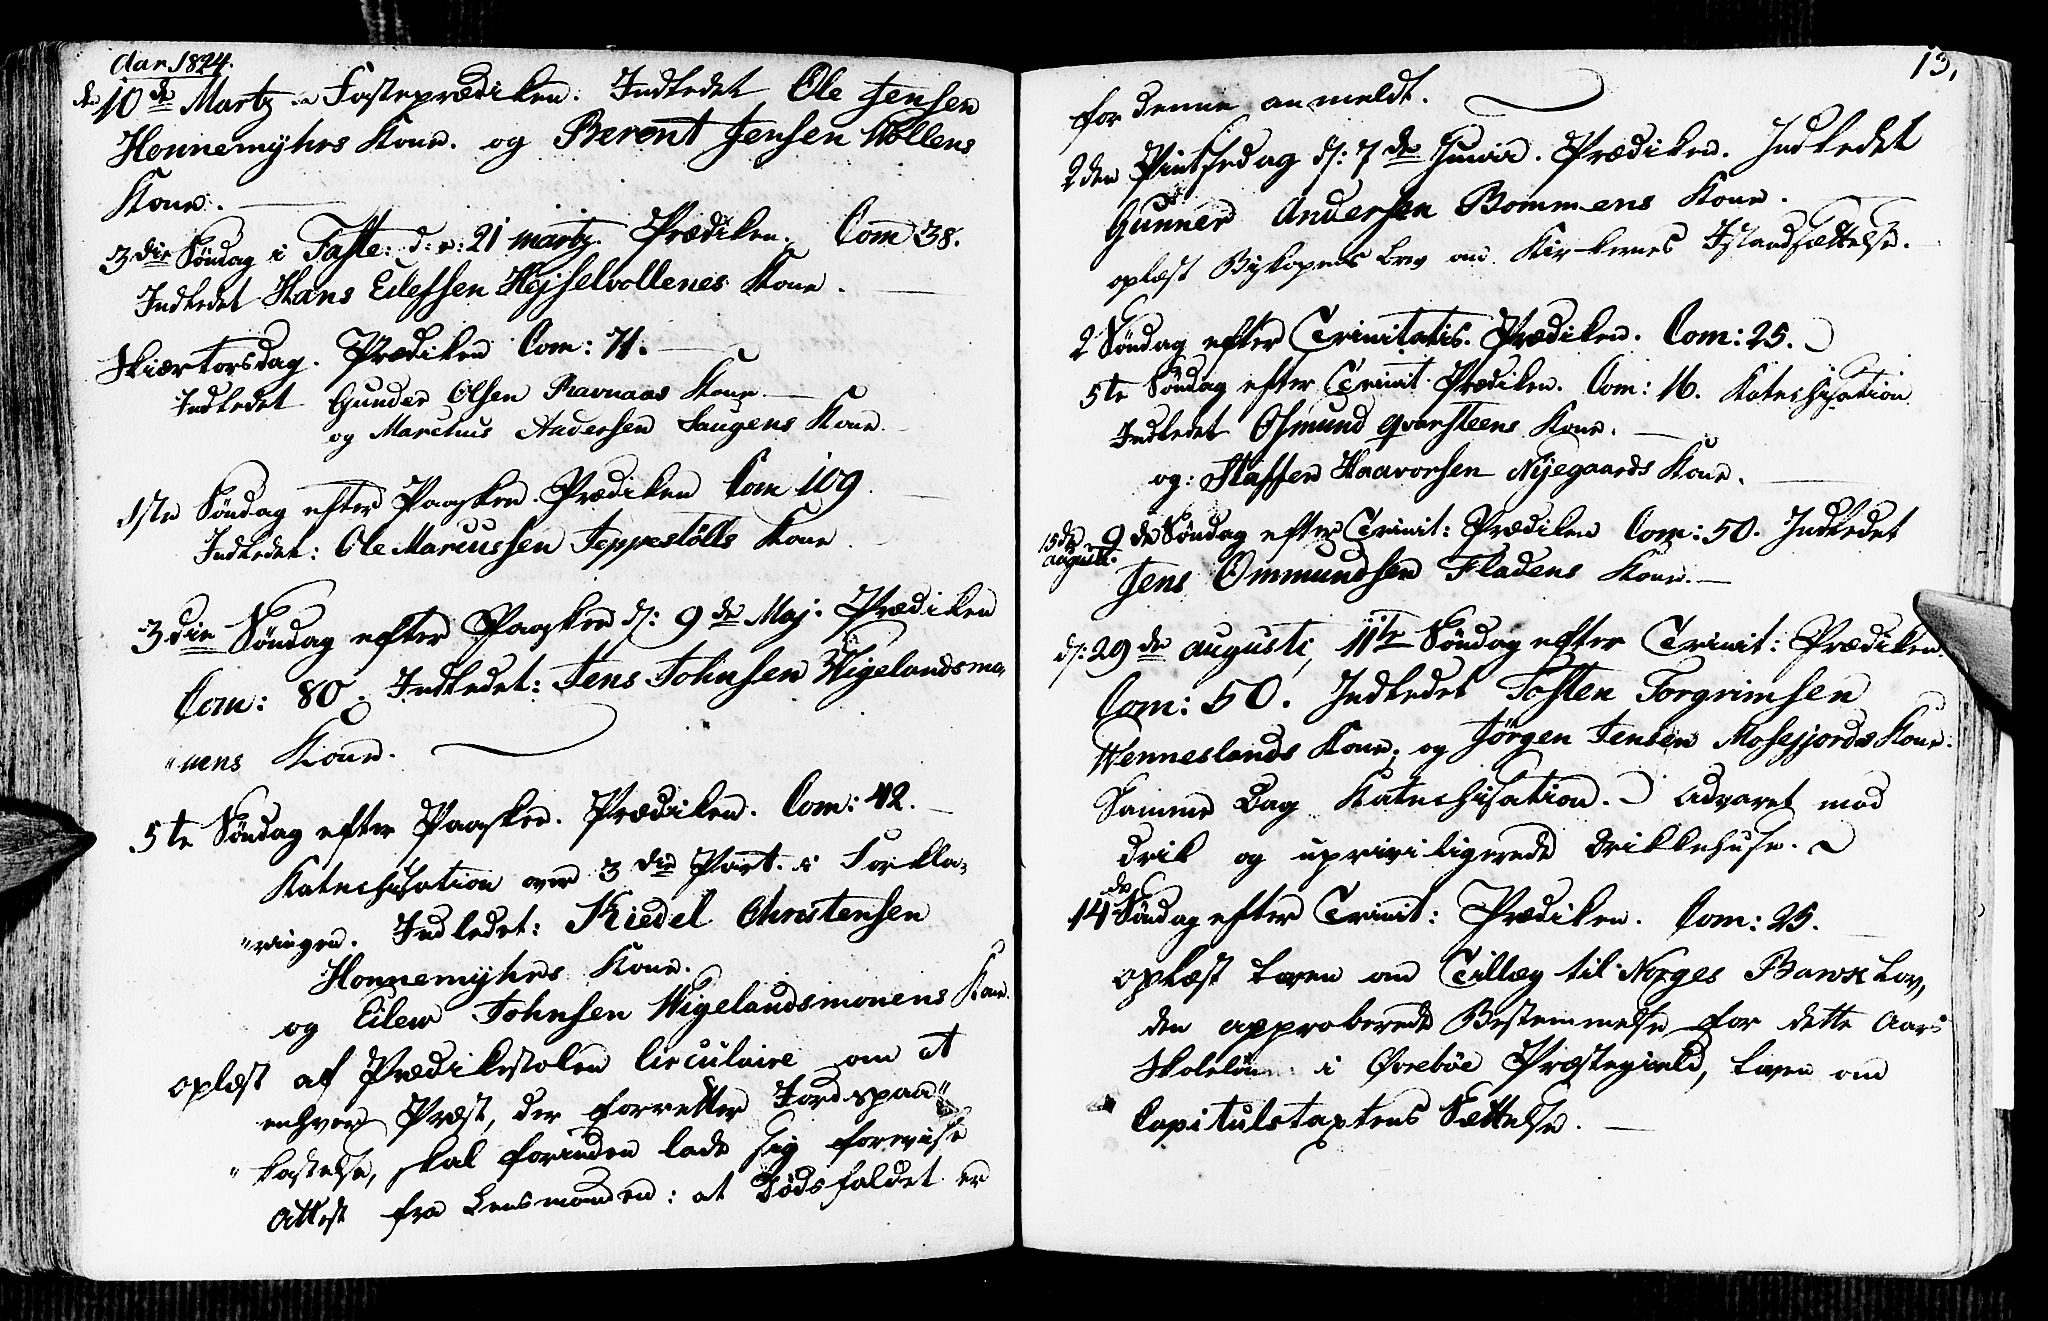 Aar 1824.
den 10de Martz en Fasteprædiken. Indledet Ole Jensen
Honnemyhrs Kone. og Berent Jensen Mollens
Kone.
3die Søndag i Faste: d: 21 martz. Prædiken. Com 38.
Indledet Hans Eilefsen Højselvollenes Kone.
Skiærtorsdag. Prædiken Com: 71.
Indledet Gunder Olsen Ravnaas Kone
og Marchus Andersen Haugens Kone.
1ste Søndag efter Paaske. Prædiken Com 109.
Indledet: Ole Marcussen Jeppestölls Kone
3die Søndag efter Paaske d: 9de Maj. Prædiken
Com: 80. Indledet: Jens Johnsen Wigelandsmo,
"nens Kone.
5te Søndag efter Paaske. Prædiken. Com: 42.
Katechisation over 3die Part i Forkla,
"ringen. Indledet: Kiedel Christensen
Honnemyhrs Kone.
og Eilew Johnsen Wigelandsmonens Kone.
oplæst af Prædikestolen Circulaire om at
enhver Præst, der forretter Jordspaa"
"kastelse, skal forinden lade sig forevise
Attest fra Lensmanden: at Dødsfaldet er
13,
for denne anmeldt.
2den Pintsedag d: 7de Junii. Prædiken. Indledet
Gunner Andersen Bommens Kone.
oplæst Biskopens brev om Kirkernes Istandsættelse.
2 Søndag efter Trinitatis. Prædiken. Com: 25.
5te Søndag efter Trinit Prædiken. Com: 16. Katechisation
Indledet Osmund Qvarsteens Kone.
og: Staffen Haavorsen Nyegaards Kone.
15de augusti. 9de Søndag efter Trinit: Prædiken Com: 50. Indledet
Jens Ommundsen Fladens Kone.
d: 29de augusti, 11te Søndag efter Trinit: Prædiken.
Com: 50. Indledet Tosten Torgrimsen
Wenneslands Kone; og Jörgen Jensen Mosefjords Kone.
Samme Dag Katechisation. Advaret mod
Drik og upriviligerede Drikkehuse.
14de Søndag efter Trinit: Prædiken. Com: 25.
oplæst Loven om Tillæg til Norges Banck Lov,
den approberede Bestemmelse for dette Aars
Skolelön i Øvrebøe Præstegield, Loven om
Capitulstaxtens Sættelse.